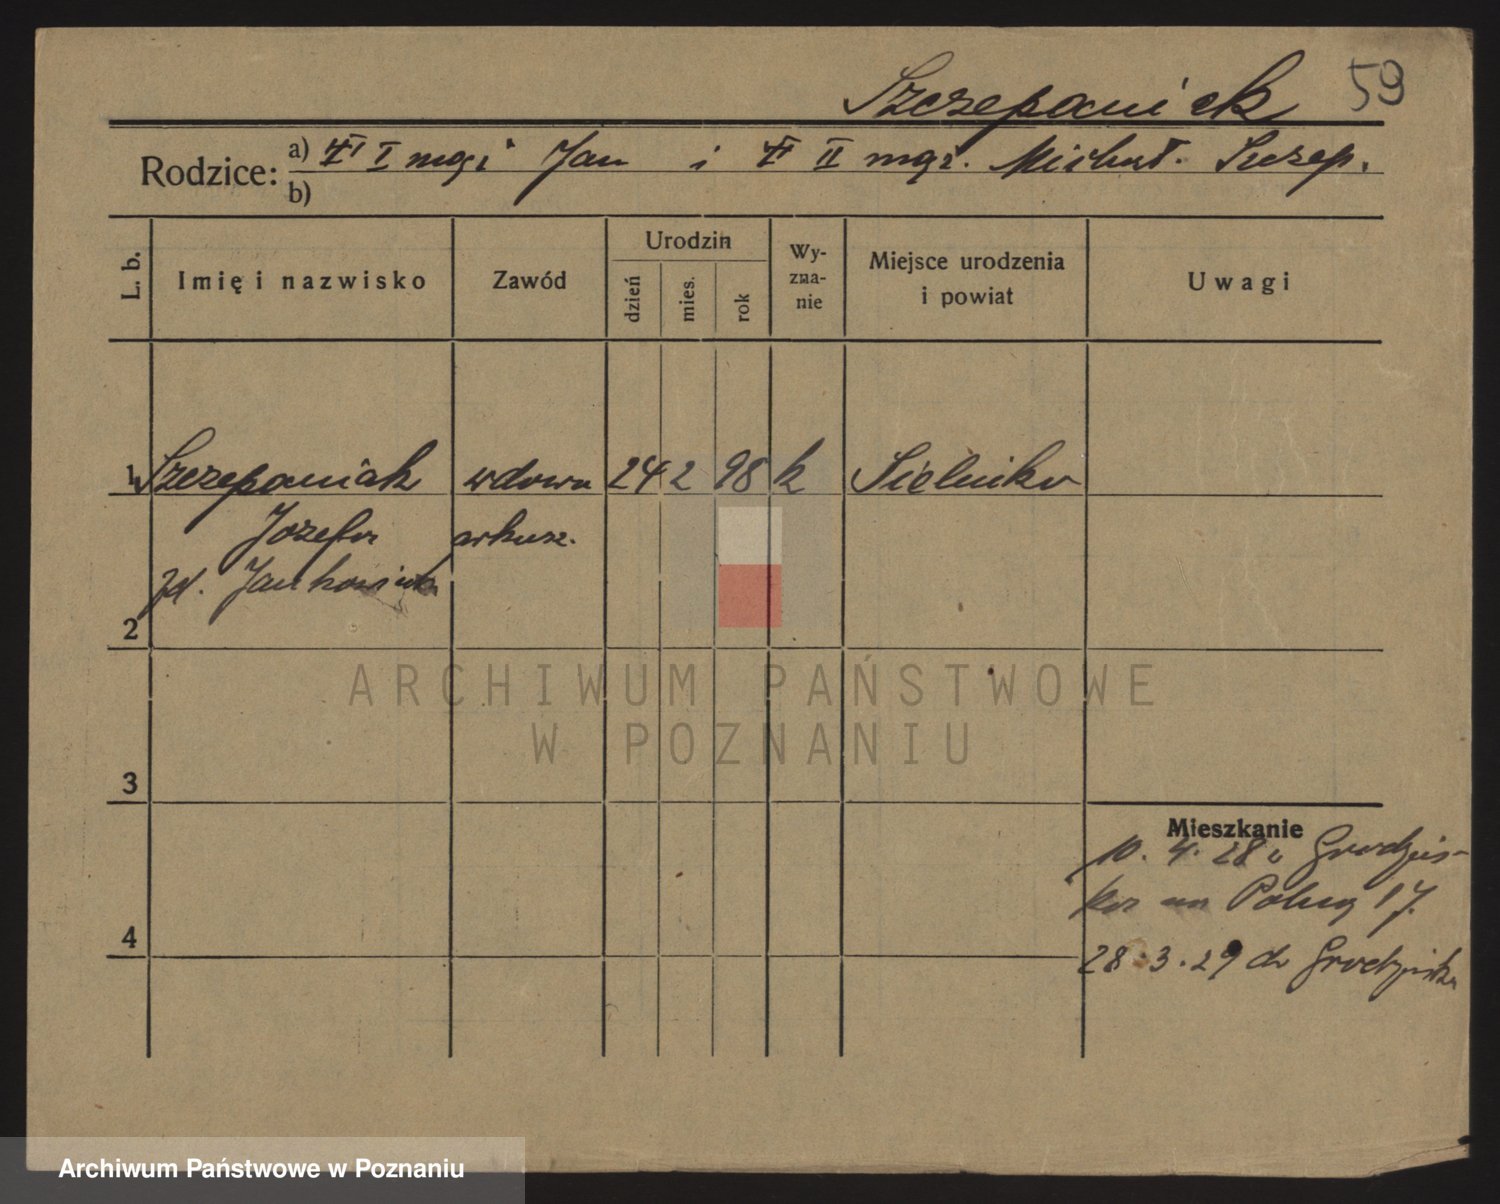 Szczepaniak 59
Rodzice: a) I mąż Jan i II mąż. Michał. Szczep.
b)
L. b.
Imię i nazwisko
Zawód
Urodzin
dzień
mies.
rok
Wy-
zna-
nie
Miejsce urodzenia
i powiat
Uwagi
1 Szczepaniak wdowa 24 2 98 k
Józefa
zd.
2
3
4
Mieszkanie
10. 4. 28 z Grodzis-
ka 17.
28.3.29 do Grodziska
ARCHIWUM PAŃSTWOWE
W POZNANIU
Archiwum Państwowe w Poznaniu